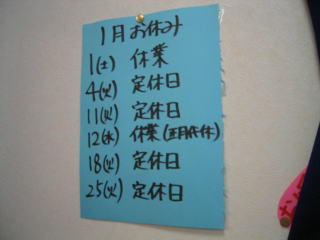 1月お休み
1(土) 休業
4(火) 定休日
11(火) 定休日
12(水) 休業(正月代休)
18(火) 定休日
25(火) 定休日